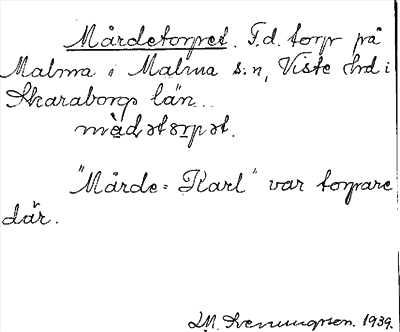 Mårdetorpet. F.d. torp på
Malma i Malma s:n, Viste hd i
Skaraborgs län.
mèdətorpət.
"Mårde-Karl" var torpare
där.
Svenungsson. 1939.